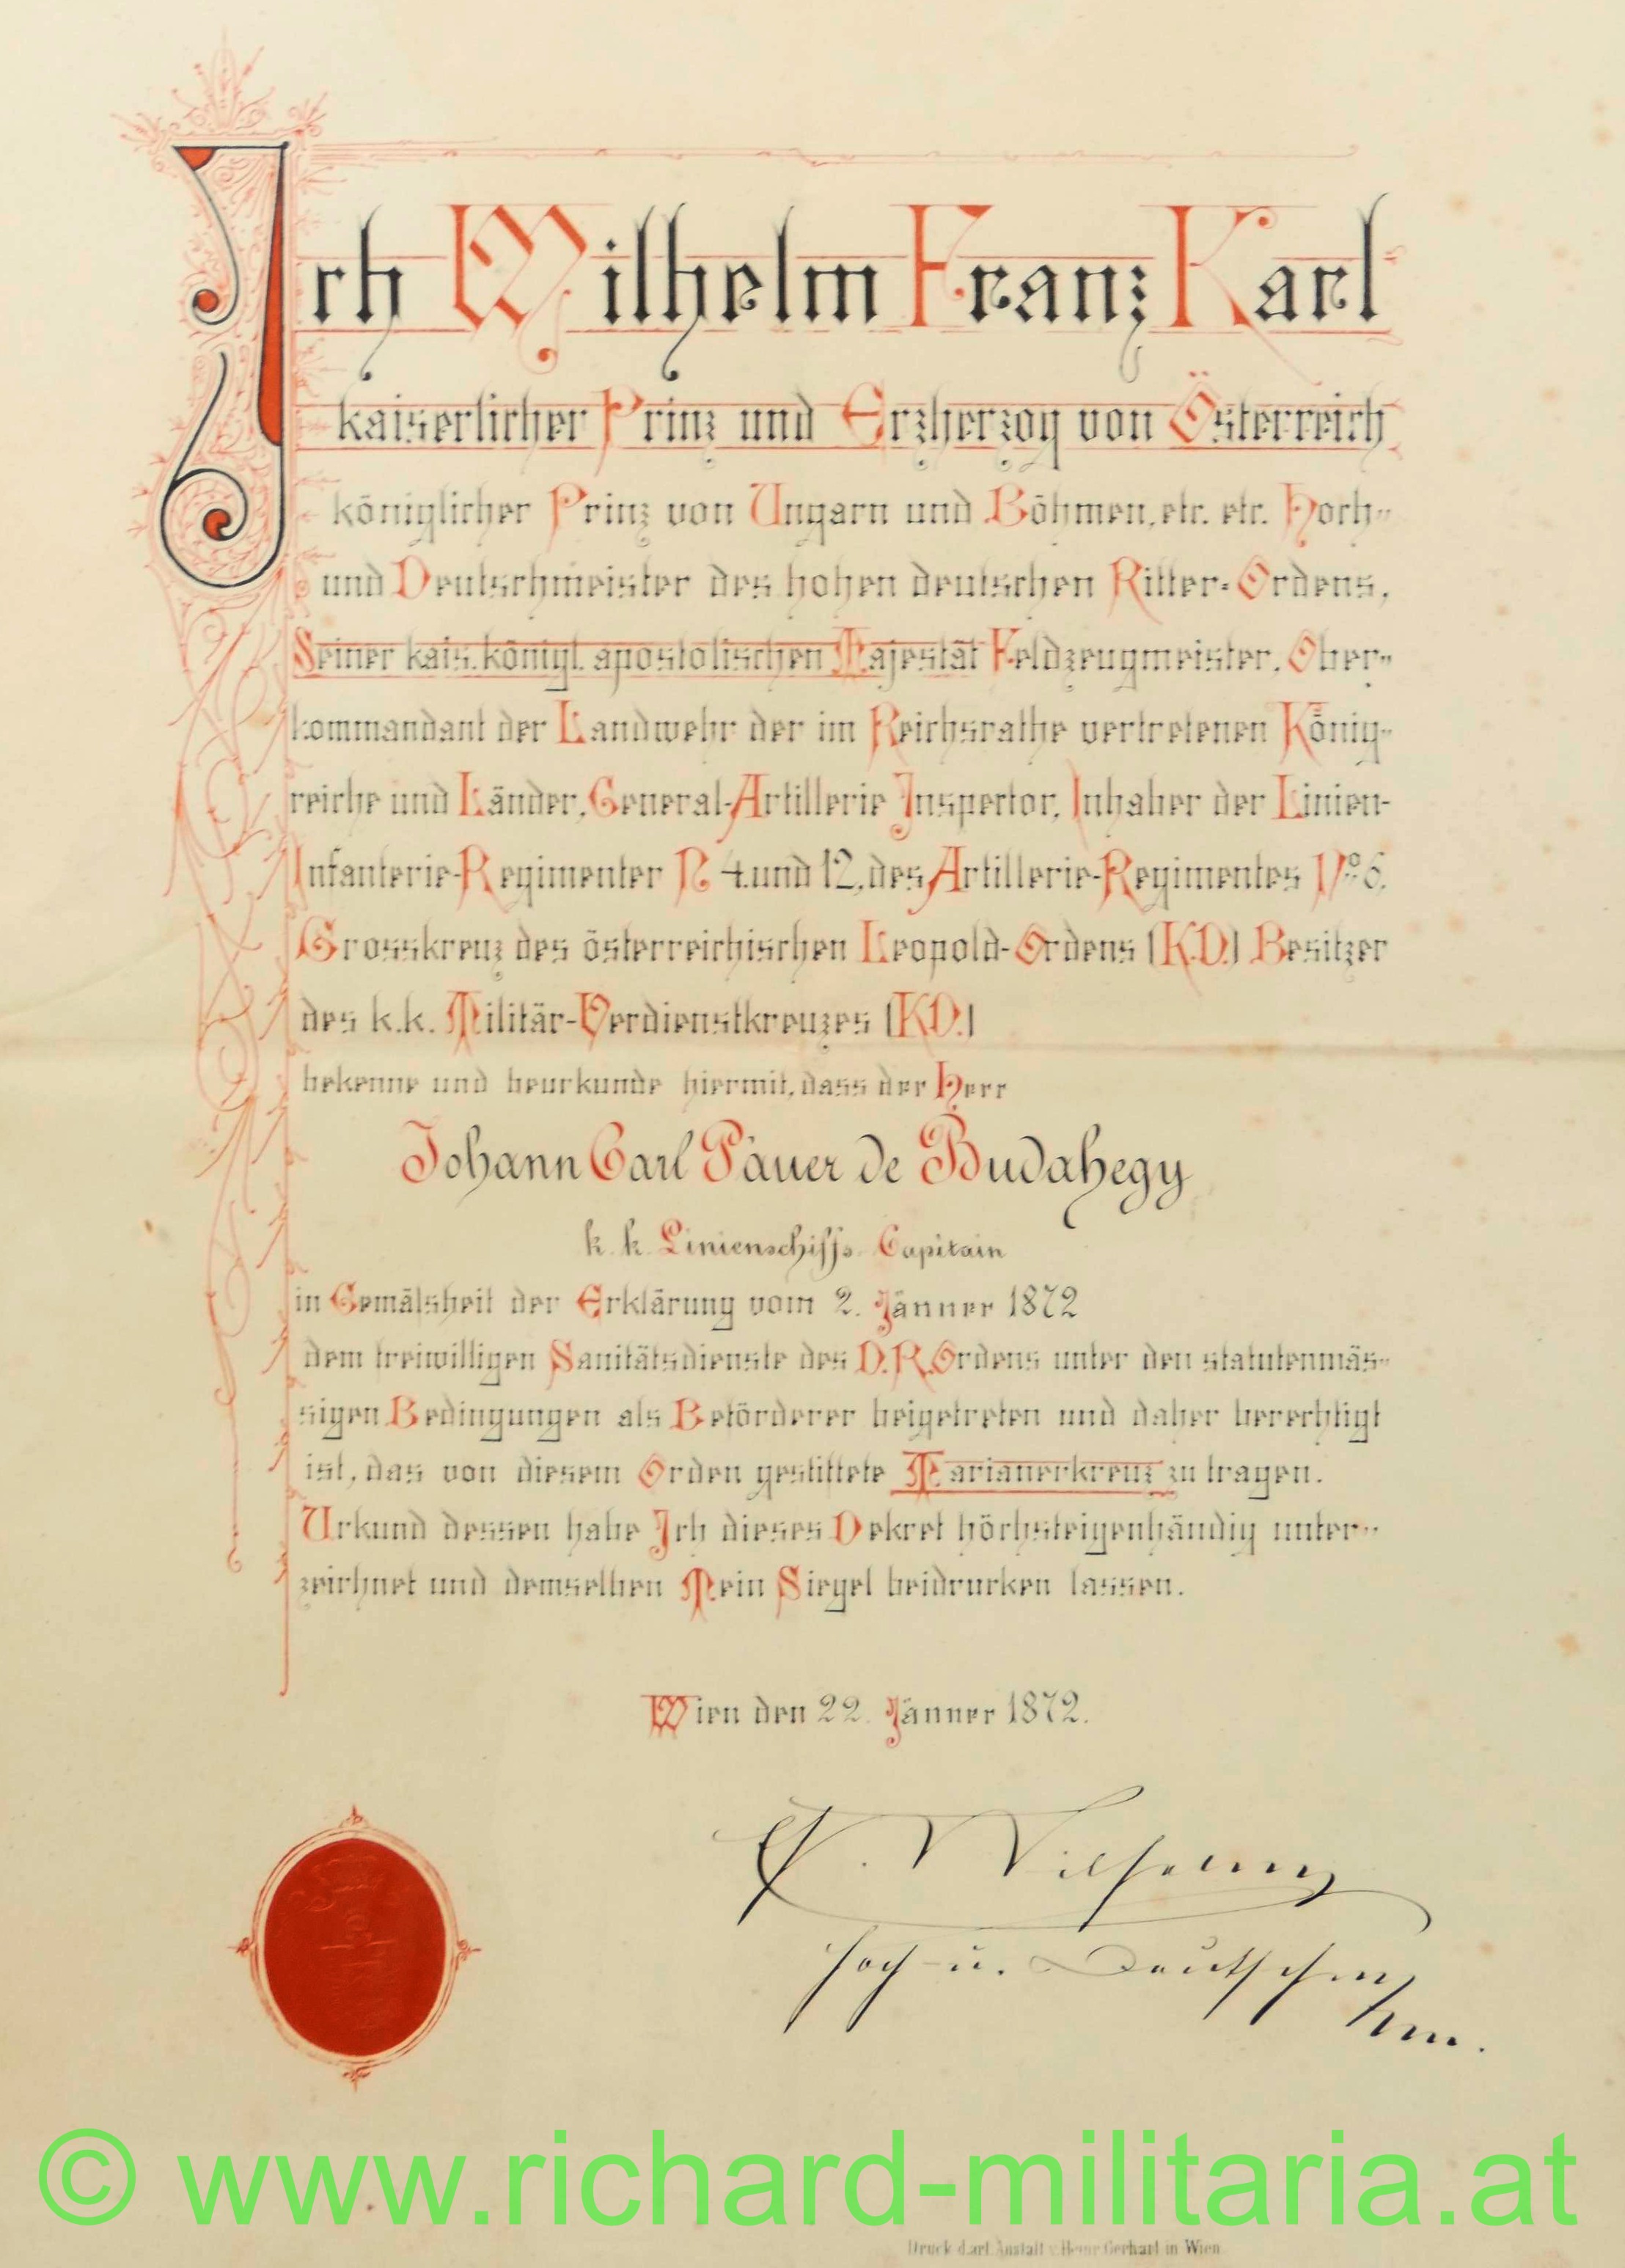 Ich Wilhelm Franz Karl
kaiserlicher Prinz und Erzherzog von Österreich
königlicher Prinz von Ungarn und Böhmen, etc. etc. Hoch-
und Deutschmeister des hohen deutschen Ritter-Ordens,
Seiner kais. königl. apostolischen Majestät Feldzeugmeister, Ober-
kommandant der Landwehr der im Reichsrathe vertretenen König-
reiche und Länder, General-Artillerie Inspector, Inhaber der Linien-
Infanterie-Regimenter No 4 und 12, des Artillerie-Regimentes No 6,
Grosskreuz des österreichischen Leopold-Ordens (K.D.) Besitzer
des k.k. Militär-Verdienstkreuzes (KD.)
bekenne und beurkunde hiermit, dass der Herr
Johann Carl Pauer de Budahegy
k. k. Linienschiffs-Capitain
in Gemäsheit der Erklärung vom 2. Jänner 1872
dem freiwilligen Sanitätsdienste des D.R.Ordens unter den statutenmäs-
sigen Bedingungen als Beförderer beigetreten und daher berechtigt
ist, das von diesem Orden gestiftete Marianerkreuz zu tragen.
Urkund dessen habe Ich dieses Dekret höchsteigenhändig unter-
zeichnet und demselben Mein Siegel beidrucken lassen.
Wien den 22. Jänner 1872.
E. Wilhelm
Hoch- u. Deutschm
© www.richard-militaria.at
Druck d. art. Anstalt v. Heinr. Gerhart in Wien